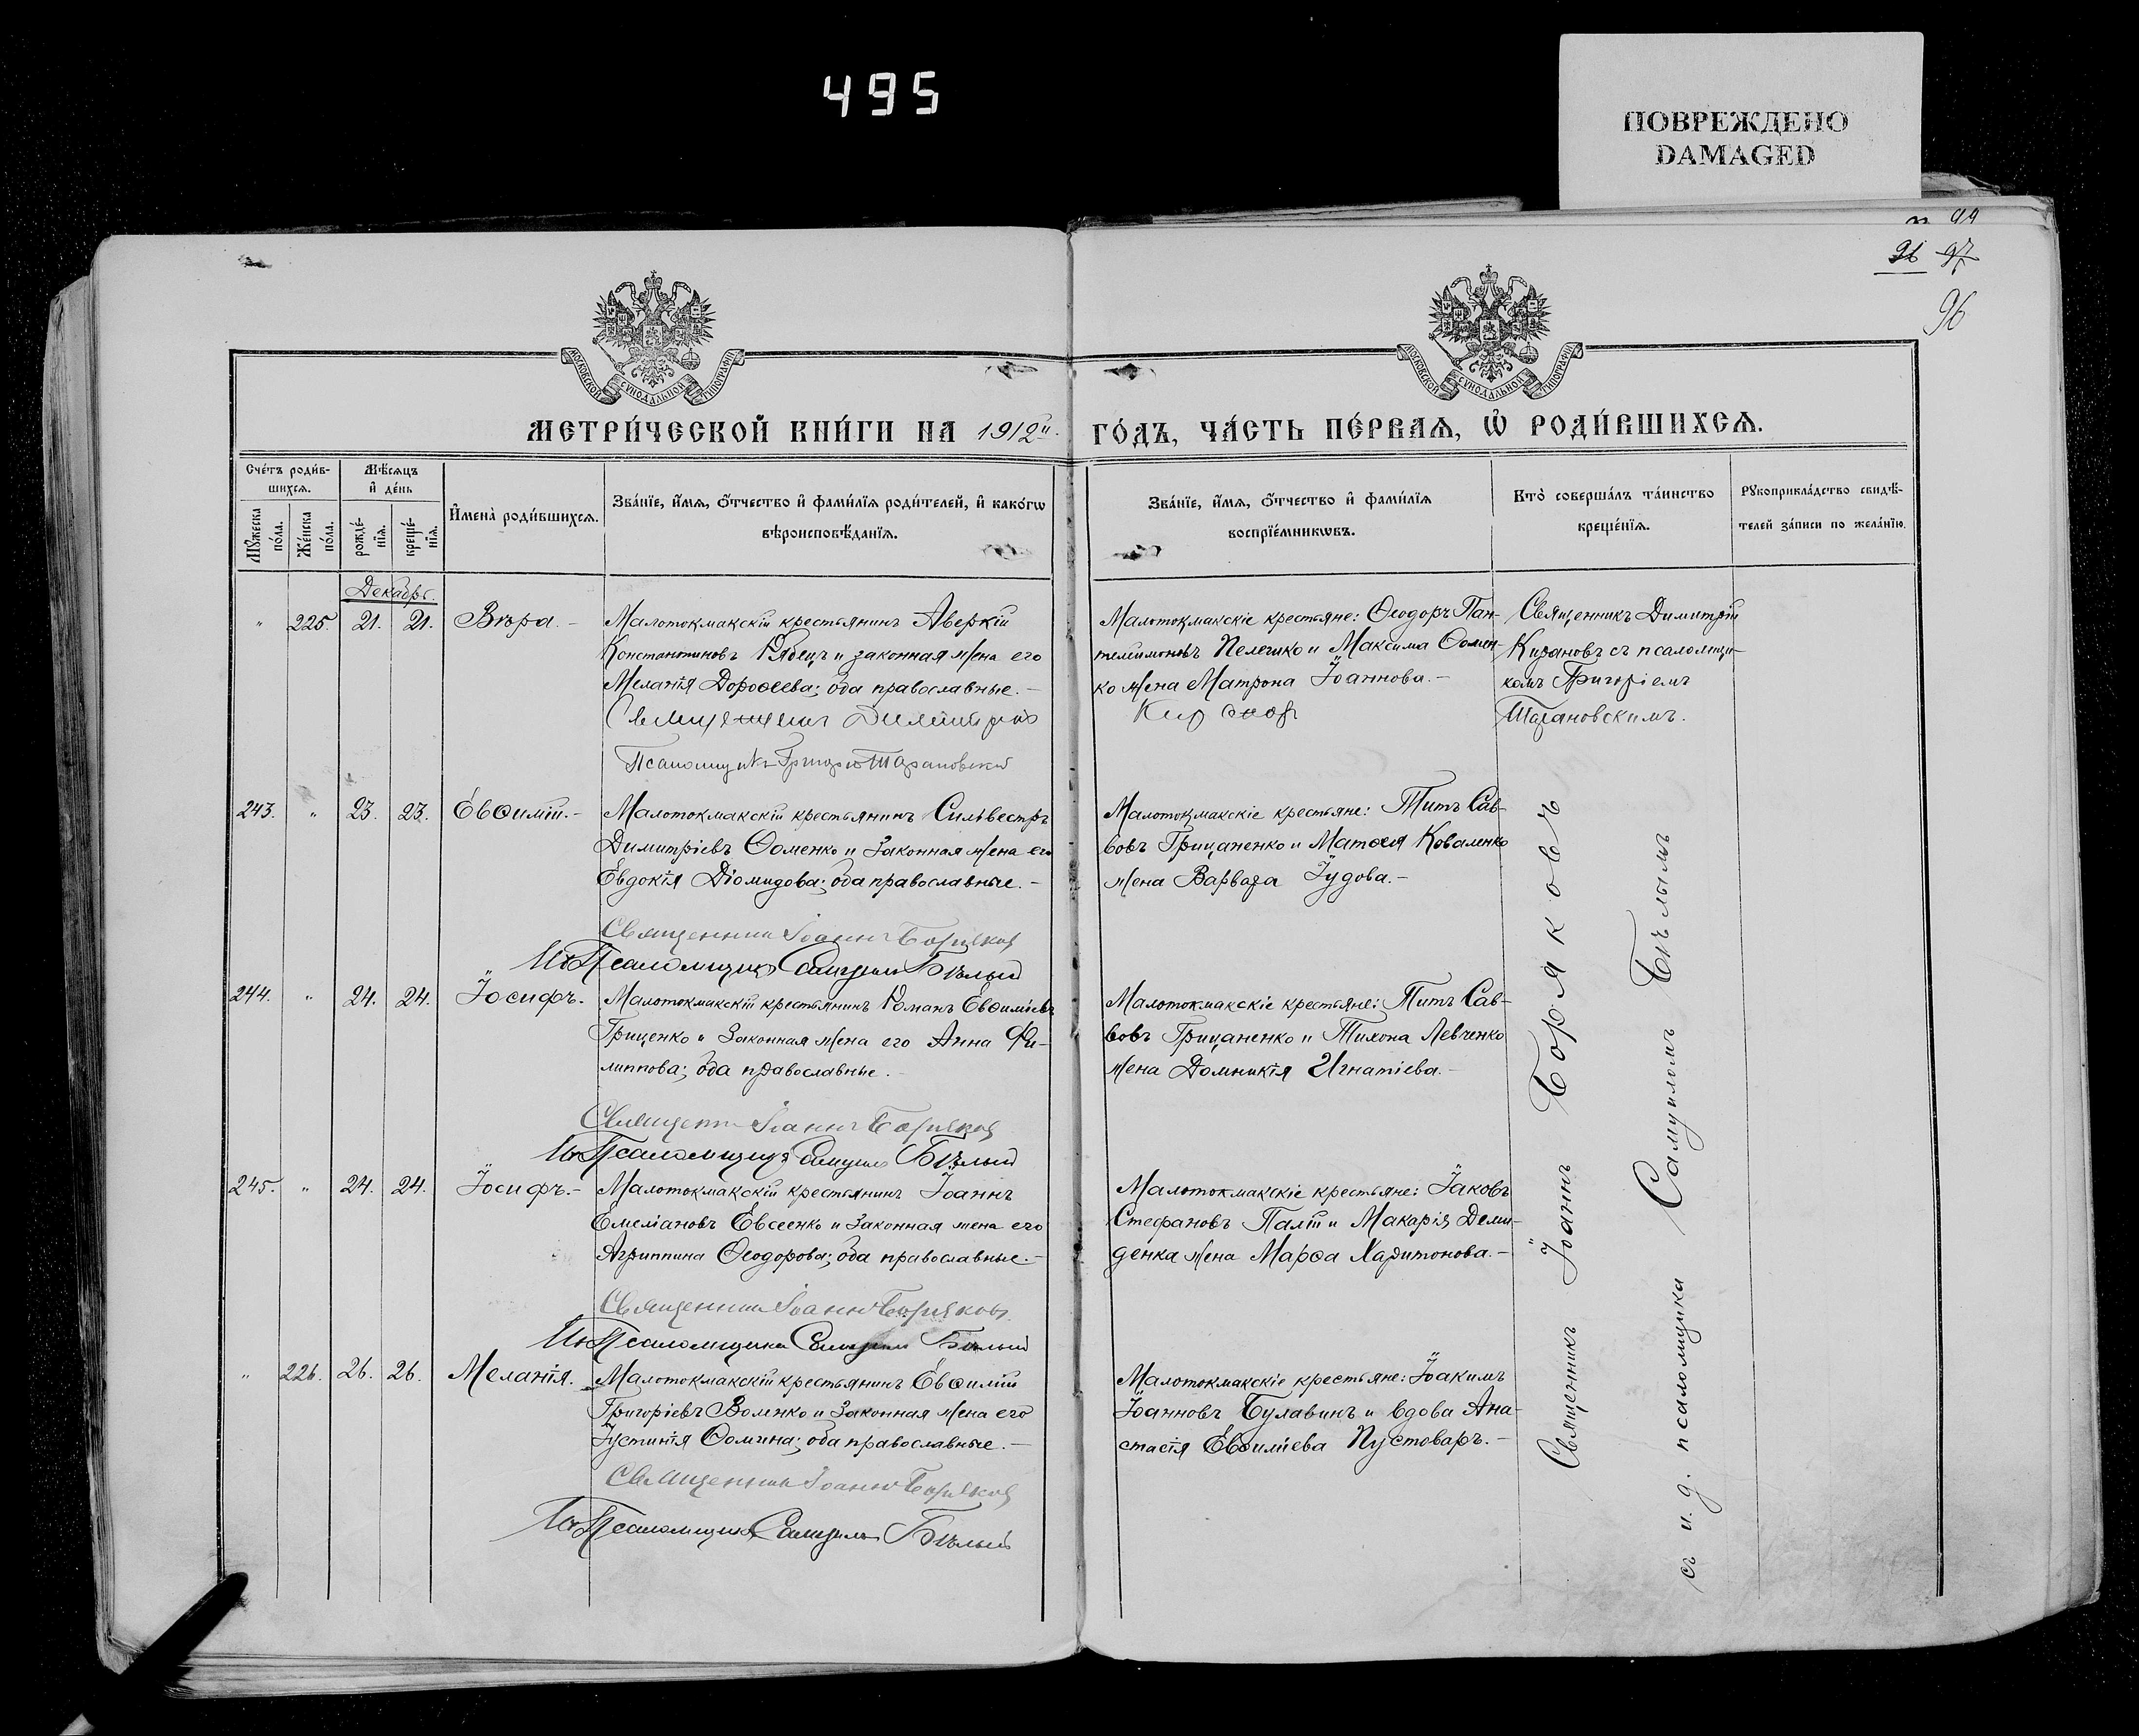 495
ПОВРЕЖДЕНО
DAMAGED
94
96 97
96
МОСКОВСКОЙ СѴНОДАЛЬНОЙ ТИПОГРАФІИ
МОСКОВСКОЙ СѴНОДАЛЬНОЙ ТИПОГРАФІИ
МЕТРИ́ЧЕСКОЙ КНИ́ГИ НА 1912й.
ГО́ДЪ, ЧА́СТЬ ПЕ́РВАѦ, Ѡ҆ РОДИ́ВШИХСѦ.
Сче́тъ роди́в-
шихсѧ.
Мꙋ́жеска по́ла.
Же́нска по́ла.
Мѣ́сѧцъ
и҆ де́нь
рожде́-
нїѧ.
креще́-
нїѧ.
И҆мена̀ роди́вшихсѧ.
Зва́нїе, и҆́мѧ, ѻ҆́тчество и҆ фами́лїѧ роди́телей, и҆ како́гѡ
вѣроисповѣ́данїѧ.
Зва́нїе, и҆́мѧ, ѻ҆́тчество и҆ фами́лїѧ
воспрїе́мникѡвъ.
Кто̀ соверша́лъ та́инство
креще́нїѧ.
Рꙋкоприкла́дство свидѣ́-
телей за́писи по жела́нїю.
Декабрь.
" 225. 21. 21. Вѣра. –
Малотокмакскій крестьянинъ Аверкій
Константиновъ Рябецъ и законная жена его
Меланія Дороѳеева; оба православные. –
Священникъ Димитрій
Псаломщикъ Григорій Тарановскій
Малотокмакскіе крестьяне: Ѳеодоръ Пан-
телеимоновъ Пелешко и Максима Ѳомен-
ко жена Матрона Іоаннова. –
Кирановъ
Священникъ Димитрій
Кирановъ съ псаломщи-
комъ Григоріемъ
Тарановскимъ.
243. " 23. 23. Евѳимій. –
Малотокмакскій крестьянинъ Сильвестръ
Димитріевъ Ѳоменко и законная жена его
Евдокія Діомидова; оба православные. –
Священникъ Іоаннъ Боряковъ
И. д. Псаломщика Самуилъ Бѣлый
Малотокмакскіе крестьяне: Титъ Сав-
вовъ Грицаненко и Матѳея Коваленко
жена Варвара Іудова. –
244. " 24. 24. Іосифъ.
Малотокмакскій крестьянинъ Романъ Евѳиміевъ
Гриценко и законная жена его Анна Фи-
липпова; оба православные.
Священникъ Іоаннъ Боряковъ
И. д. Псаломщика Самуилъ Бѣлый
Малотокмакскіе крестьяне: Титъ Сав-
вовъ Грицаненко и Тихона Левченко
жена Домникія Игнатіева. –
245. " 24. 24. Іосифъ. –
Малотокмакскій крестьянинъ Іоаннъ
Емеліановъ Евсеенко и законная жена его
Агриппина Ѳеодорова; оба православные. –
Священникъ Іоаннъ Боряковъ
И. д. Псаломщика Самуилъ Бѣлый
Малотокмакскіе крестьяне: Іаковъ
Стефановъ Палій и Макарія Деми-
денка жена Марѳа Харитонова. –
" 226. 26. 26. Меланія.
Малотокмакскій крестьянинъ Евѳимій
Григоріевъ Воленко и законная жена его
Іустинія Ѳомина; оба православные. –
Священникъ Іоаннъ Боряковъ
И. д. Псаломщика Самуилъ Бѣлый
Малотокмакскіе крестьяне: Іоакимъ
Іоанновъ Булавинъ и вдова Ана-
стасія Евѳиміева Пустоваръ. –
Священникъ Іоаннъ Боряковъ
съ и. д. псаломщика Самуиломъ Бѣлымъ